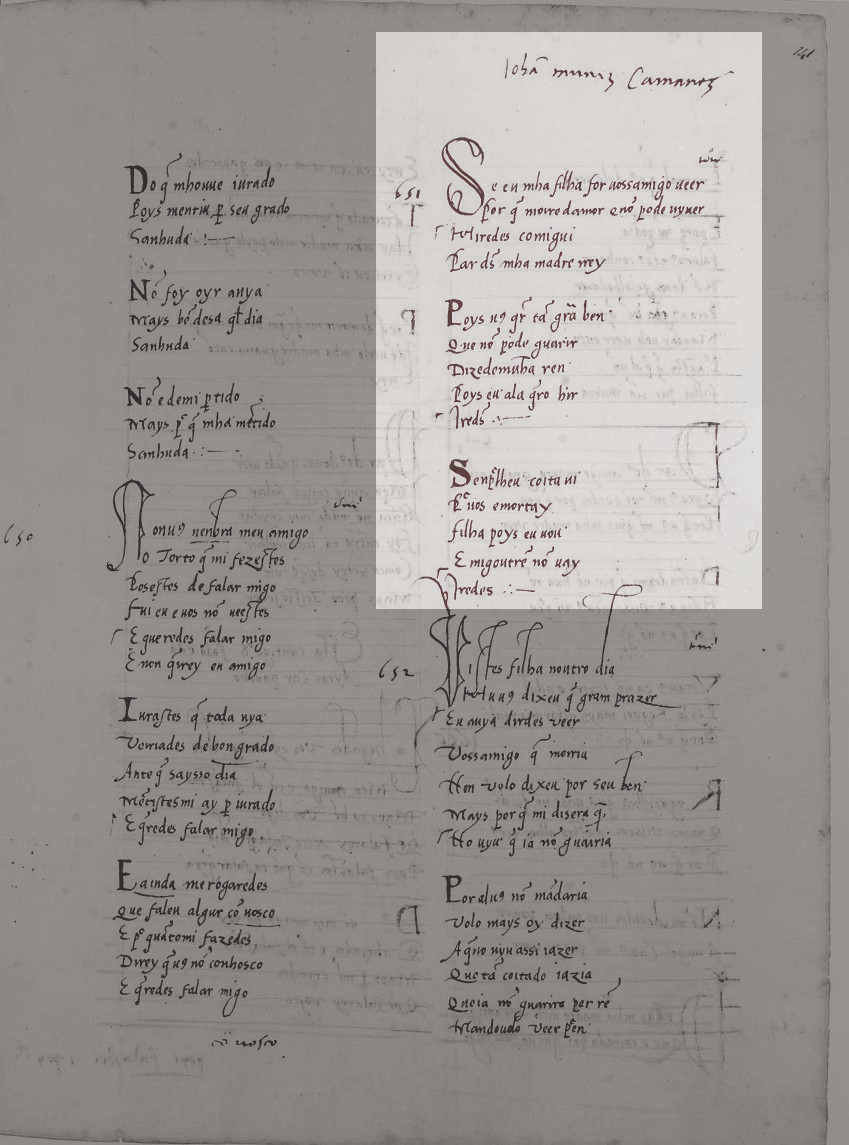 141
Do q̃ mhouue iurado
Poys mentiu ꝑ seu grado
Sanhuda
Nõ foy oyr auya
Mays bẽ desa q̃l dia
Sanhuda
Nõ e demi ꝑtido
Mays ꝑ q̃ mha mẽtido
Sanhuda
650
Nonuꝯ nenbra meu amigo
No Torto q̃ mi fezestes
Posestes de falar migo
Fui eu e uos nõ ueestes
E queredes falar migo
E non q̃rrey eu amigo
Iurastes q̃ toda uya
Verriades de bon grado
Ante q̃ saysso dia
Mẽtistesmi ay ꝑ iurado
E q̃redes falar migo
E ainda me rogaredes
Que faleu algur cõ uosco
E ꝑ quãtomi fazedes
Direy q̃uꝯ nõ conhosco
E q̃redes falar migo
cõ uosco
Iohã muniz Camanez
651
Se eu mha filha for uossamigo ueer
Por q̃ moire damor e nõ pode uyuer
Hiredes comigui
Par ds̃ mha madre irey
Poys uꝯ q̃r tã grã ben
Que nõ pode guarir
Dizedemuha ren
Poys eu ala q̃ro hir
Ireds̃
Senp̃lheu coita ui
P̃ uos e mortay
filha poys eu uou
E migoutrẽ nõ uay
Hiredes
652
Vistes filha noutro dia
Hu uꝯ dixeu q̃ gram prazer
Eu auya dirdes ueer
Vossamigo q̃ morria
Non uolo dixeu por seu ben
Mays por q̃ mi disera q̃
Ho uyu q̃ ia nõ guarria
Por aluꝯ nõ mãdaria
Volo mays oy dizer
A q̃no uyu assi iazer
Que tã coitado iazia
Que ia nõ guarira per rẽ
Mandouolo ueer p̃en